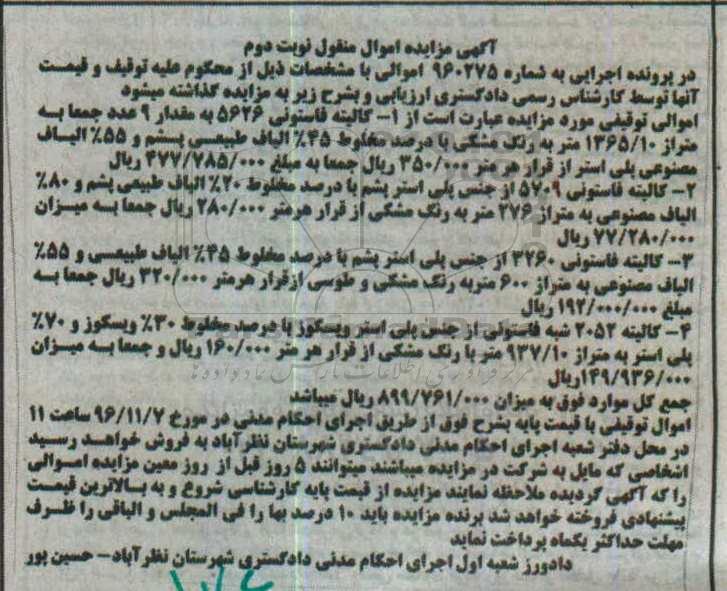 آگهی مزایده اموال منقول نوبت دوم
در پرونده اجرایی به شماره ۹۶۰۲۷۵ اموالی با مشخصات ذیل از محکوم علیه توقیف و قیمت
آنها توسط کارشناس رسمی دادگستری ارزیابی و بشرح زیر به مزایده گذاشته میشود
اموالی توقیفی مورد مزایده عبارت است از ۱- کالیته فاستونی ۵۶۲۶ به مقدار ۹ عدد جمعا به
متراژ ۱۳۶۵/۱۰ متر به رنگ مشکی با درصد مخلوط ۴۵٪ الیاف طبیعی پشم و ۵۵٪ الیاف
مصنوعی پلی استر از قرار هر متر ۳۵۰/۰۰۰ ریال جمعا به مبلغ ۴۷۷/۷۸۵/۰۰۰ ریال
۲- کالیته فاستونی ۵۷۰۹ از جنس پلی استر پشم با درصد مخلوط ۲۰٪ الیاف طبیعی پشم و ۸۰٪
الیاف مصنوعی به متراژ ۲۷۶ متر به رنگ مشکی از قرار هرمتر ۲۸۰/۰۰۰ ریال جمعا به میزان
۷۷/۲۸۰/۰۰۰ ریال
۳- کالیته فاستونی ۳۲۶۰ از جنس پلی استر پشم با درصد مخلوط ۴۵٪ الیاف طبیعی و ۵۵٪
الیاف مصنوعی به متراژ ۶۰۰ متربه رنگ مشکی و طوسی ازقرار هرمتر ۳۲۰/۰۰۰ ریال جمعا به
مبلغ ۱۹۲/۰۰۰/۰۰۰ ریال
۴- کالیته ۲۰۵۲ شبه فاستونی از جنس پلی استر ویسکوز با درصد مخلوط ۳۰٪ ویسکوز و ۷۰٪
پلی استر به متراژ ۹۳۷/۱۰ متر با رنگ مشکی از قرار هر متر ۱۶۰/۰۰۰ ریال و جمعا به میزان
۱۴۹/۹۳۶/۰۰۰ریال
جمع کل موارد فوق به میزان ۸۹۹/۷۶۱/۰۰۰ ریال میباشد
اموال توقیفی با قیمت پایه بشرح فوق از طریق اجرای احکام مدنی در مورخ ۹۶/۱۱/۷ ساعت ۱۱
در محل دفتر شعبه اجرای احکام مدنی دادگستری شهرستان نظرآباد به فروش خواهد رسید
اشخاصی که مایل به شرکت در مزایده میباشند میتوانند ۵ روز قبل از روز معین مزایده اموالی
را که آگهی گردیده ملاحظه نمایند مزایده از قیمت پایه کارشناسی شروع و به بالاترین قیمت
پیشنهادی فروخته خواهد شد برنده مزایده باید ۱۰ درصد بها را فی المجلس و الباقی را ظرف
مهلت حداکثر یکماه پرداخت نماید
دادورز شعبه اول اجرای احکام مدنی دادگستری شهرستان نظرآباد- حسین پور